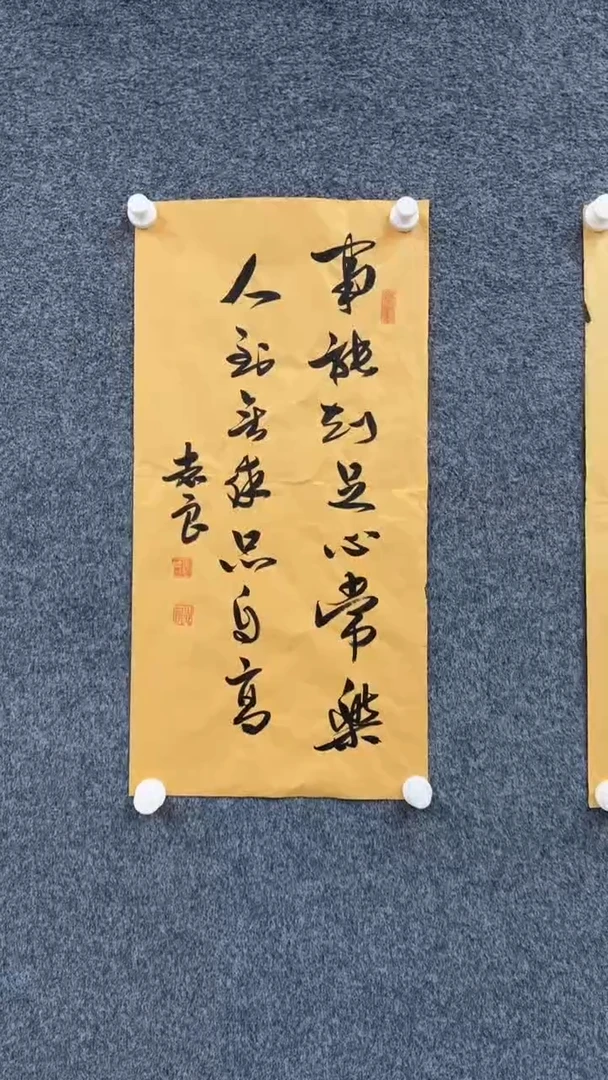 事能知足心常樂
人到無求品自高
袁良